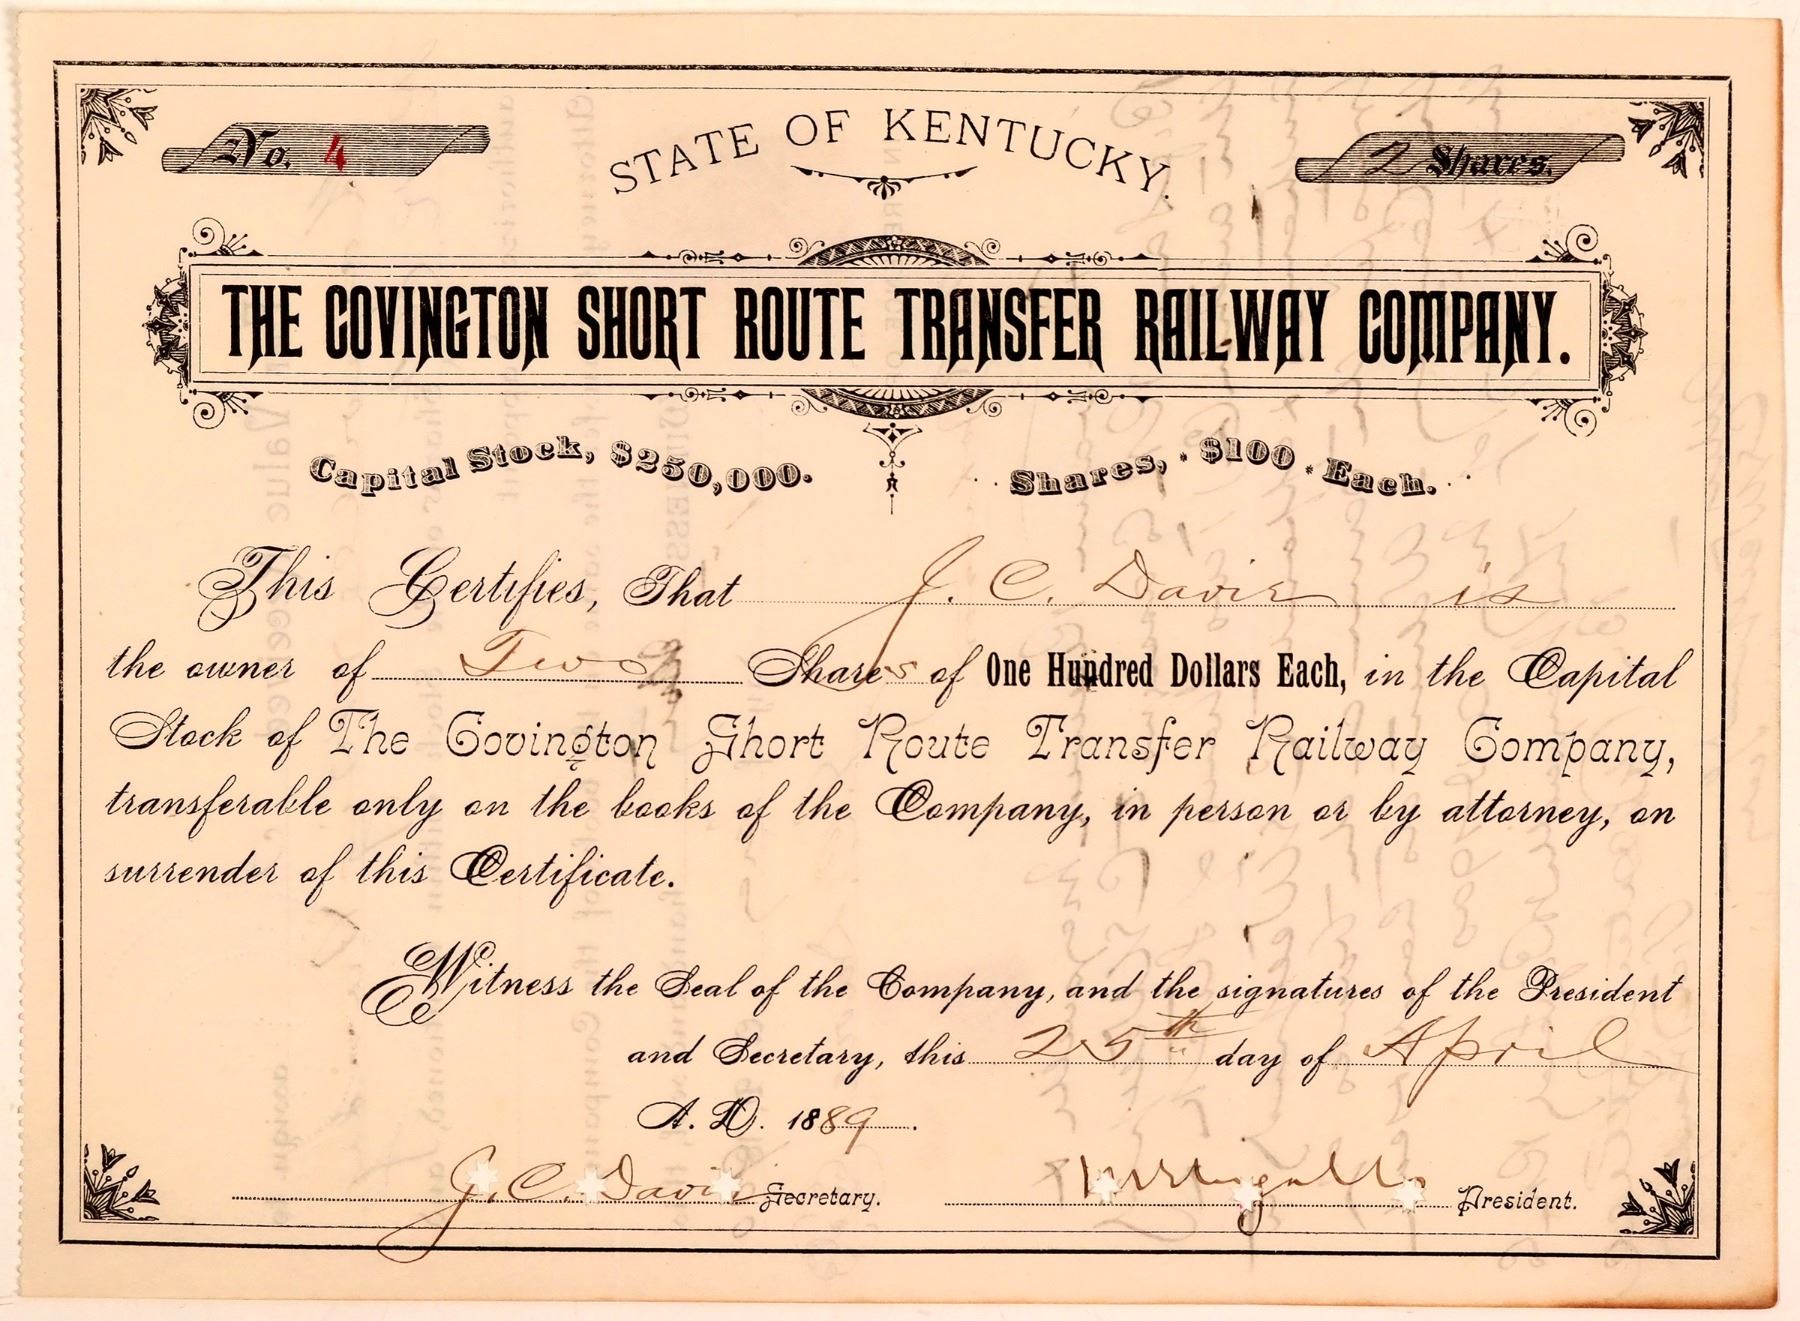 No. 4
STATE OF KENTUCKY.
2 Shares.
THE COVINGTON SHORT ROUTE TRANSFER RAILWAY COMPANY.
Capital Stock, $250,000. Shares, $100 Each.
This Certifies, That J. C. Davis is
the owner of Two Shares of One Hundred Dollars Each, in the Capital
Stock of The Covington Short Route Transfer Railway Company,
transferable only on the books of the Company, in person or by attorney, on
surrender of this Certificate.
Witness the Seal of the Company, and the signatures of the President
and Secretary, this 25th day of April
A. D. 1889.
J. C. Davis Secretary. President.